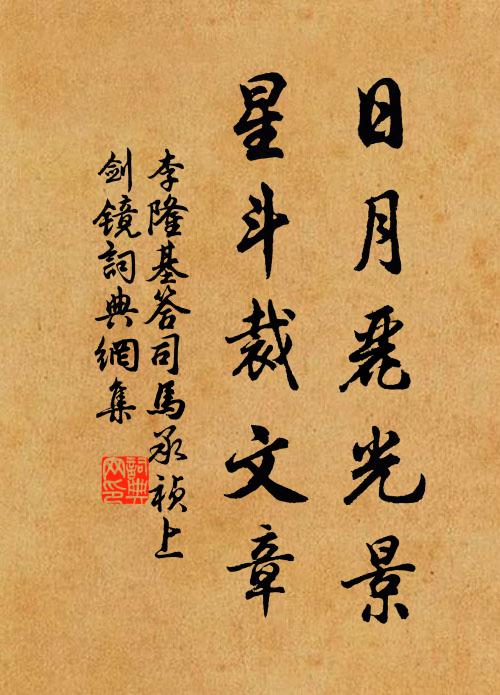 日月麗光景
星斗裁文章
李隆基答司馬承禎上
剑镜詞典網集
詞典
网印